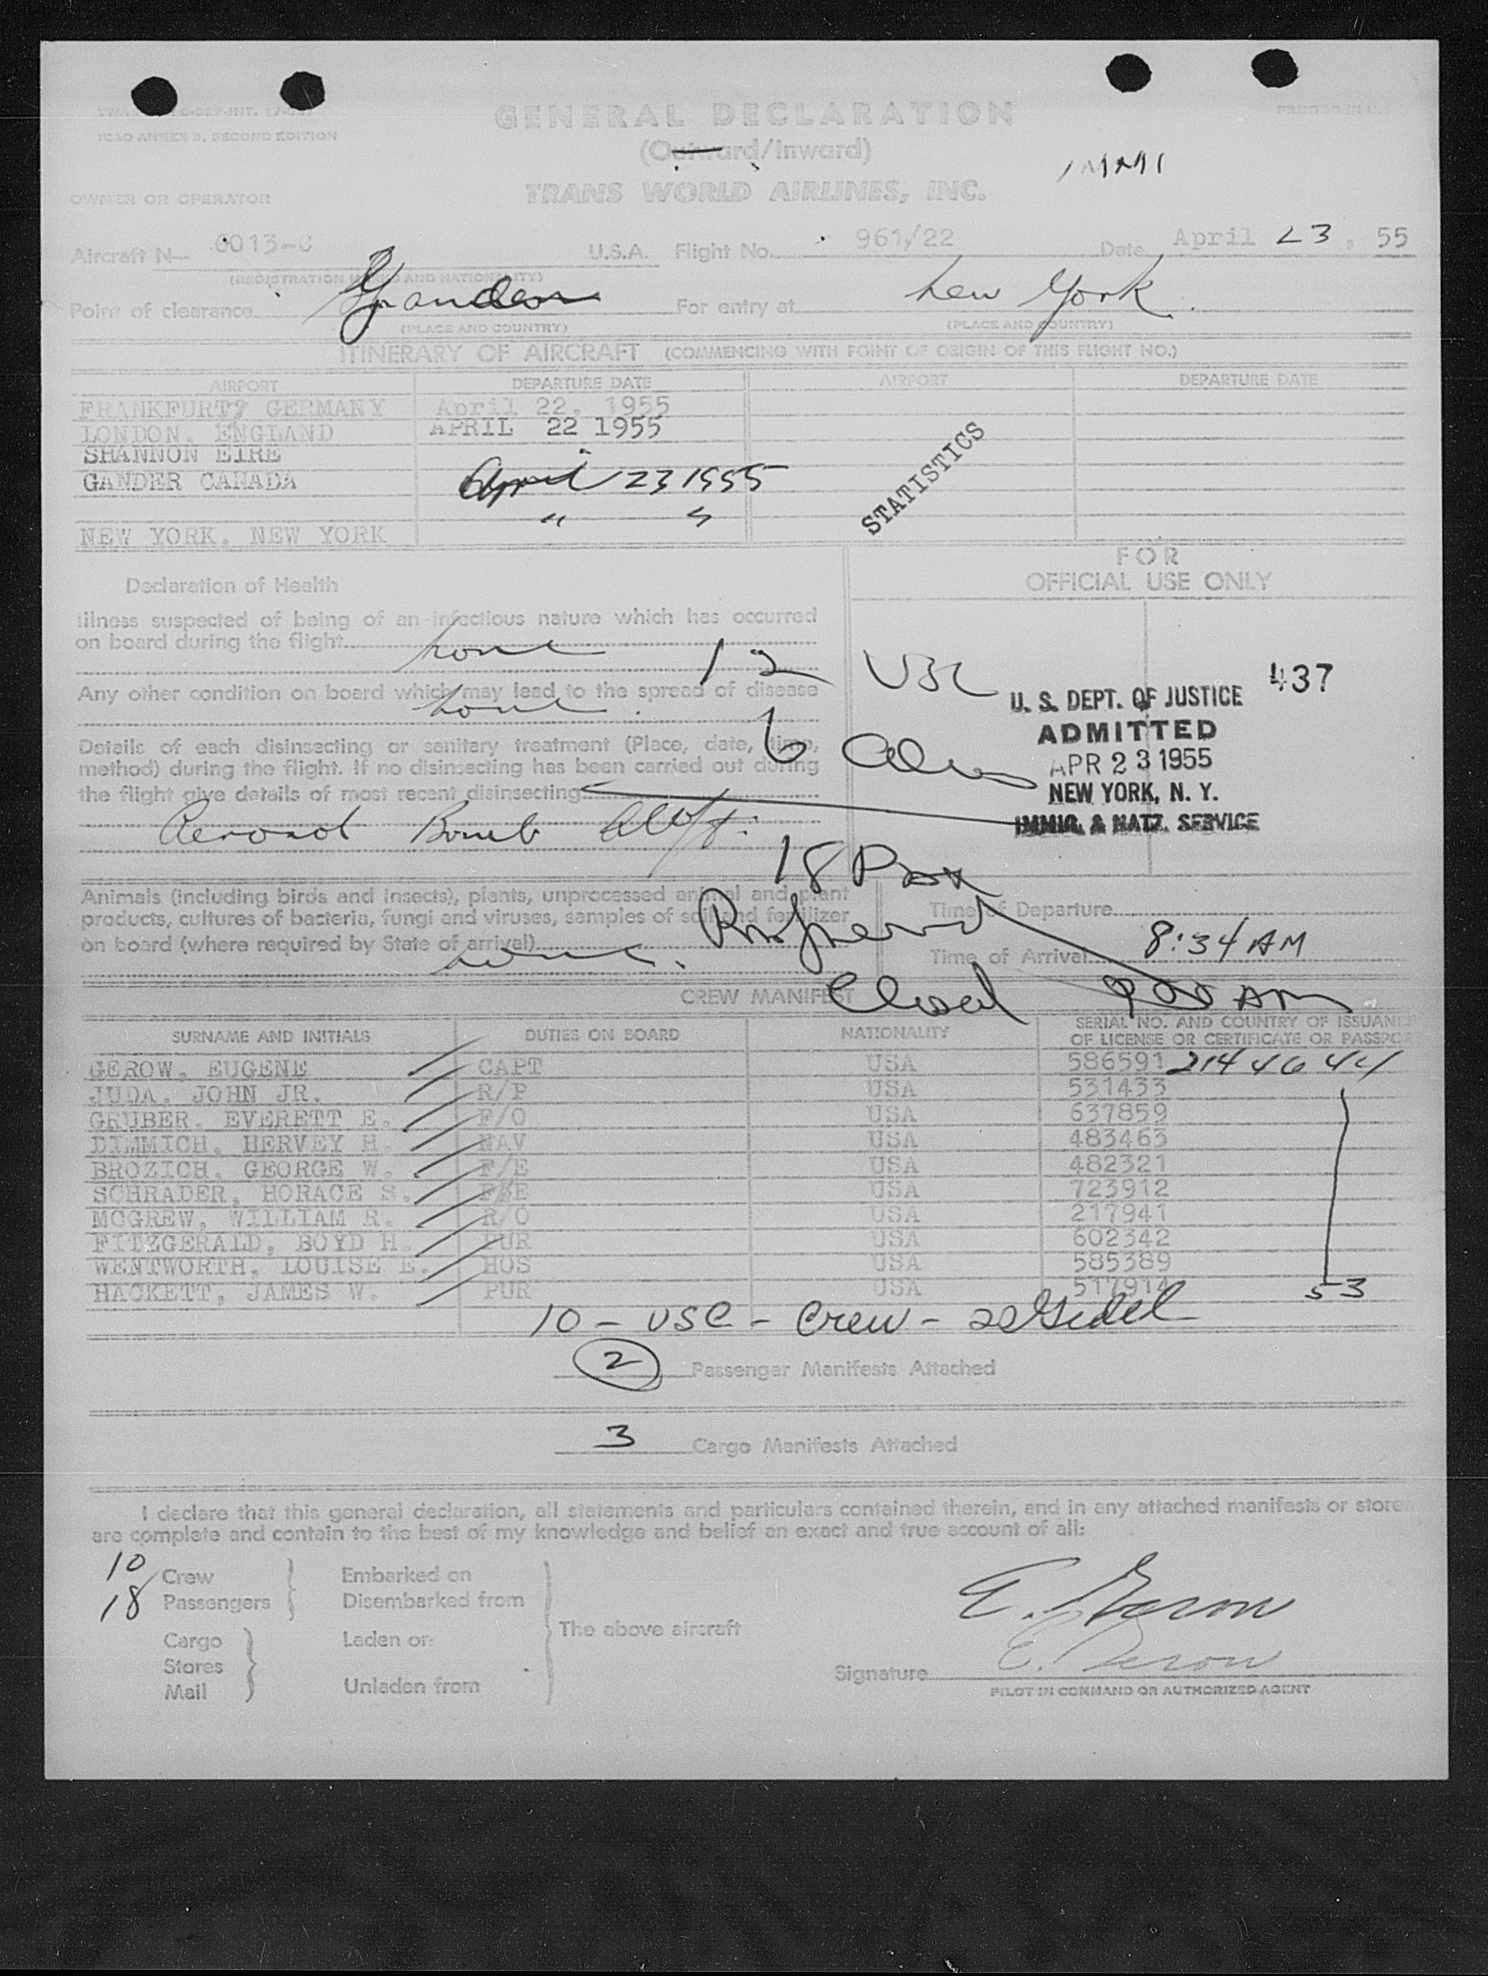 ICAO ANNEX 9, SECOND EDITION
GENERAL DECLARATION
(Outward/Inward)
IMMI
TRANS WORLD AIRLINES, INC.
OWNER OR OPERATOR
Aircraft N— 6013-C U.S.A. Flight No. 961/22 Date April 23, 55
(REGISTRATION MARKS AND NATIONALITY)
Point of clearance Gander For entry at New York
(PLACE AND COUNTRY) (PLACE AND COUNTRY)
ITINERARY OF AIRCRAFT (COMMENCING WITH POINT OF ORIGIN OF THIS FLIGHT NO.)
AIRPORT DEPARTURE DATE AIRPORT DEPARTURE DATE
FRANKFURT, GERMANY April 22, 1955
LONDON, ENGLAND APRIL 22 1955
SHANNON EIRE
GANDER CANADA April 23 1955
NEW YORK, NEW YORK " "
STATISTICS
FOR
OFFICIAL USE ONLY
Declaration of Health
Illness suspected of being of an infectious nature which has occurred
on board during the flight none
Any other condition on board which may lead to the spread of disease
none
Details of each disinsecting or sanitary treatment (Place, date, time,
method) during the flight. If no disinsecting has been carried out during
the flight give details of most recent disinsecting
Aerosol Bomb
12 USC
6 Alien
437
U. S. DEPT. OF JUSTICE
ADMITTED
APR 23 1955
NEW YORK, N. Y.
IMMIG. & NATZ. SERVICE
18 Pax
Animals (including birds and insects), plants, unprocessed animal and plant
products, cultures of bacteria, fungi and viruses, samples of soil and fertilizer
on board (where required by State of arrival) none.
Time of Departure
Time of Arrival 8:34 AM
Closed 900 AM
CREW MANIFEST
SURNAME AND INITIALS DUTIES ON BOARD NATIONALITY SERIAL NO. AND COUNTRY OF ISSUANCE
OF LICENSE OR CERTIFICATE OR PASSPO
GEROW, EUGENE CAPT USA 586591
JUDA, JOHN JR. R/P USA 531433
GRUBER, EVERETT E. F/O USA 637859
DIMMICH, HERVEY H. NAV USA 483463
BROZICH, GEORGE W. F/E USA 482321
SCHRADER, HORACE S. F/E USA 723912
MCGREW, WILLIAM R. R/O USA 217941
FITZGERALD, BOYD H. PUR USA 602342
WENTWORTH, LOUISE E. HOS USA 585389
HACKETT, JAMES W. PUR USA 517914 53
10 - USC - Crew -
2 Passenger Manifests Attached
3 Cargo Manifests Attached
I declare that this general declaration, all statements and particulars contained therein, and in any attached manifests or store
are complete and contain to the best of my knowledge and belief an exact and true account of all:
10 Crew
18 Passengers
Embarked on
Disembarked from
Cargo
Stores
Mail
Laden on
Unladen from
The above aircraft
E. Gerow
Signature E. Gerow
PILOT IN COMMAND OR AUTHORIZED AGENT